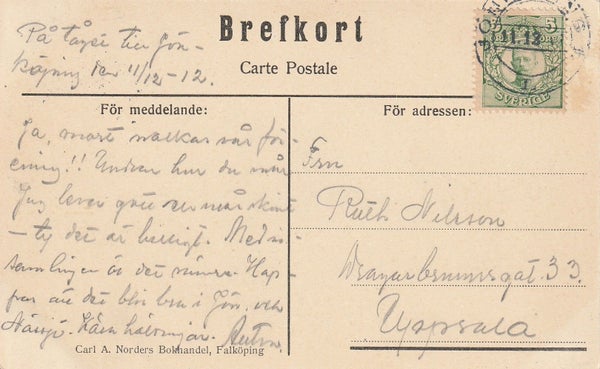 På tåget till Jön-
köping den 11/12-12.
Brefkort
Carte Postale
5
11.12
SVERIGE
För meddelande:
Ja, snart nalkas vår för-
ening!! Undrar hur du mår
Jag lever gott och mår skint
- ty det är billigt. Med
är det värre. Hop-
pas att det blir bra i Jön. och
Nässjö. Kära hälsningar.
För adressen:
Frn
Ruth Nilsson
33.
Uppsala
Carl A. Norders Bokhandel, Falköping